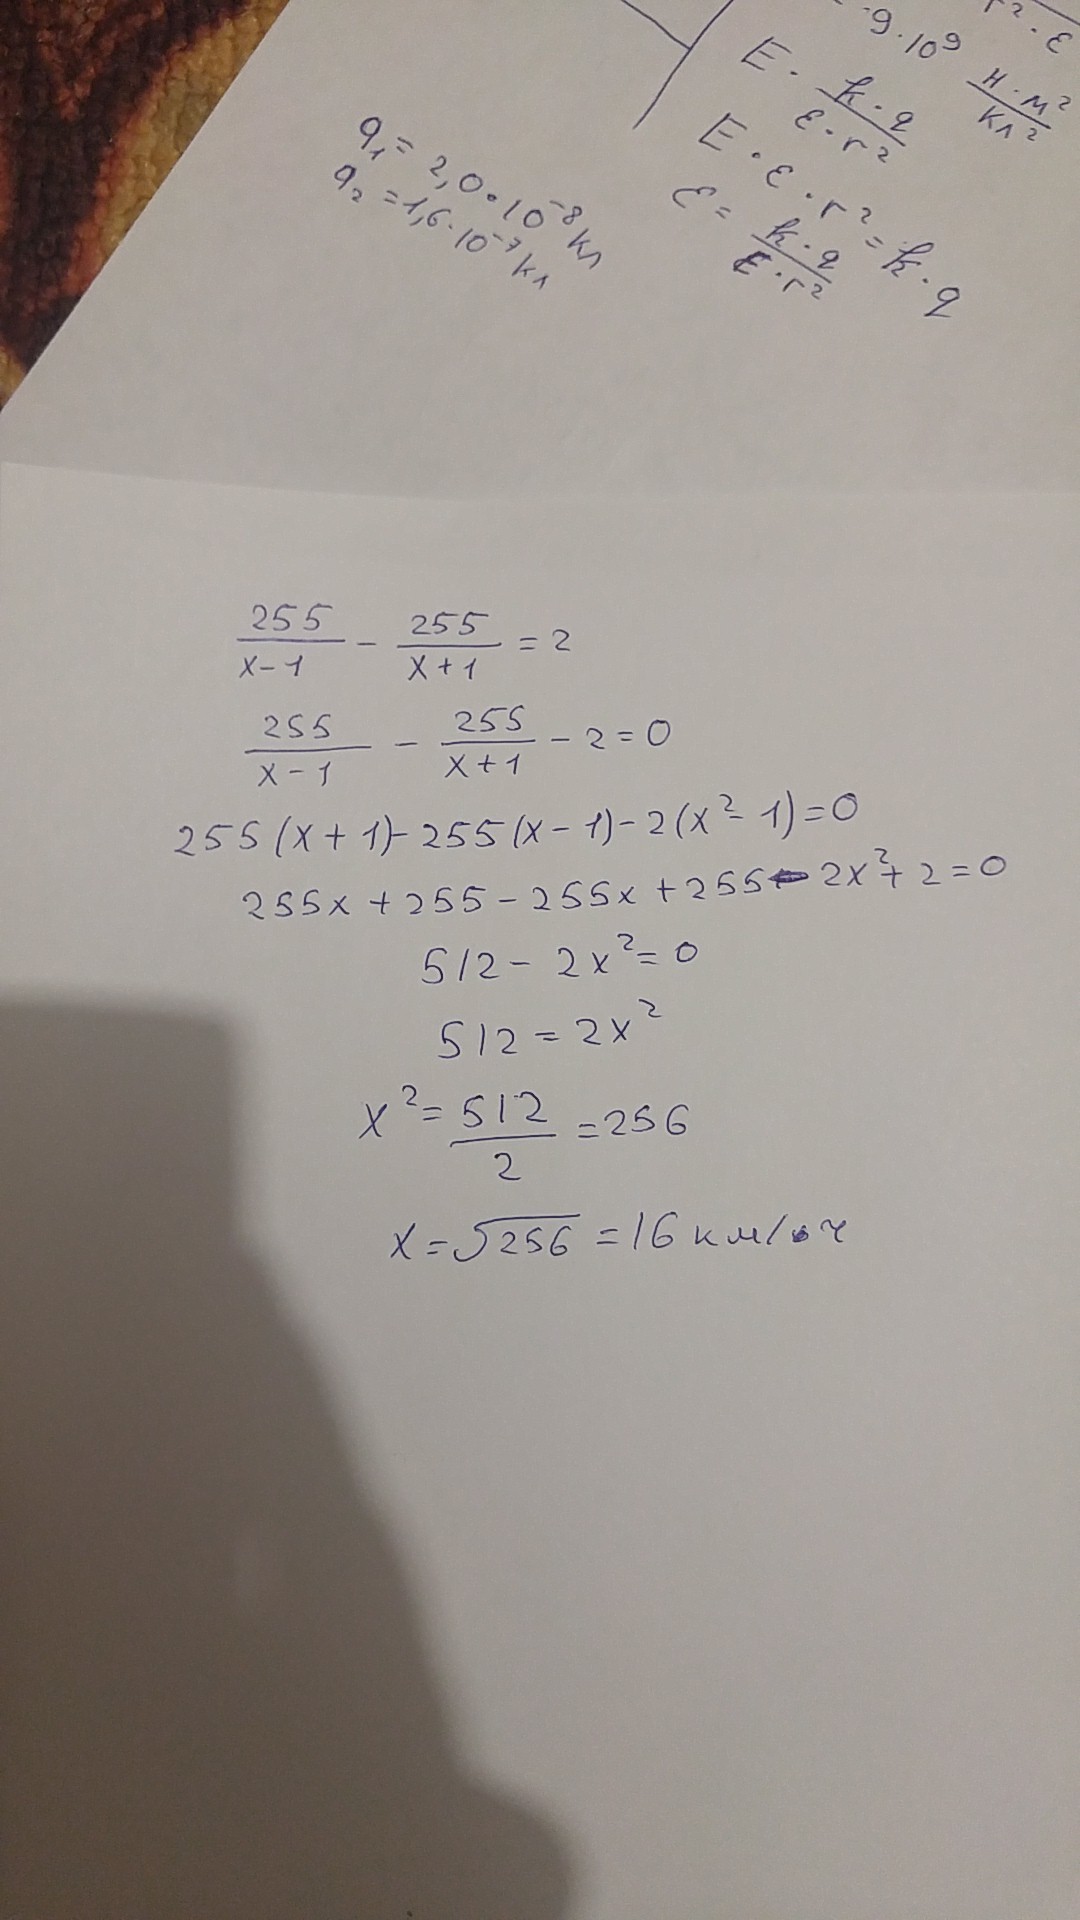 r² · ε
9 · 10⁹ Н · м² / Кл²
E · k · q / ε · r²
E · ε · r² = k · q
ε = k · q / E · r²
q₁ = 2,0 · 10⁻⁸ Кл
q₂ = 1,6 · 10⁻⁷ Кл
255/(x-1) - 255/(x+1) = 2
255/(x-1) - 255/(x+1) - 2 = 0
255(x+1)-255(x-1)-2(x²-1)=0
255x+255-255x+255-2x²+2=0
512-2x²=0
512=2x²
x²=512/2=256
x=√256=16 км/ч